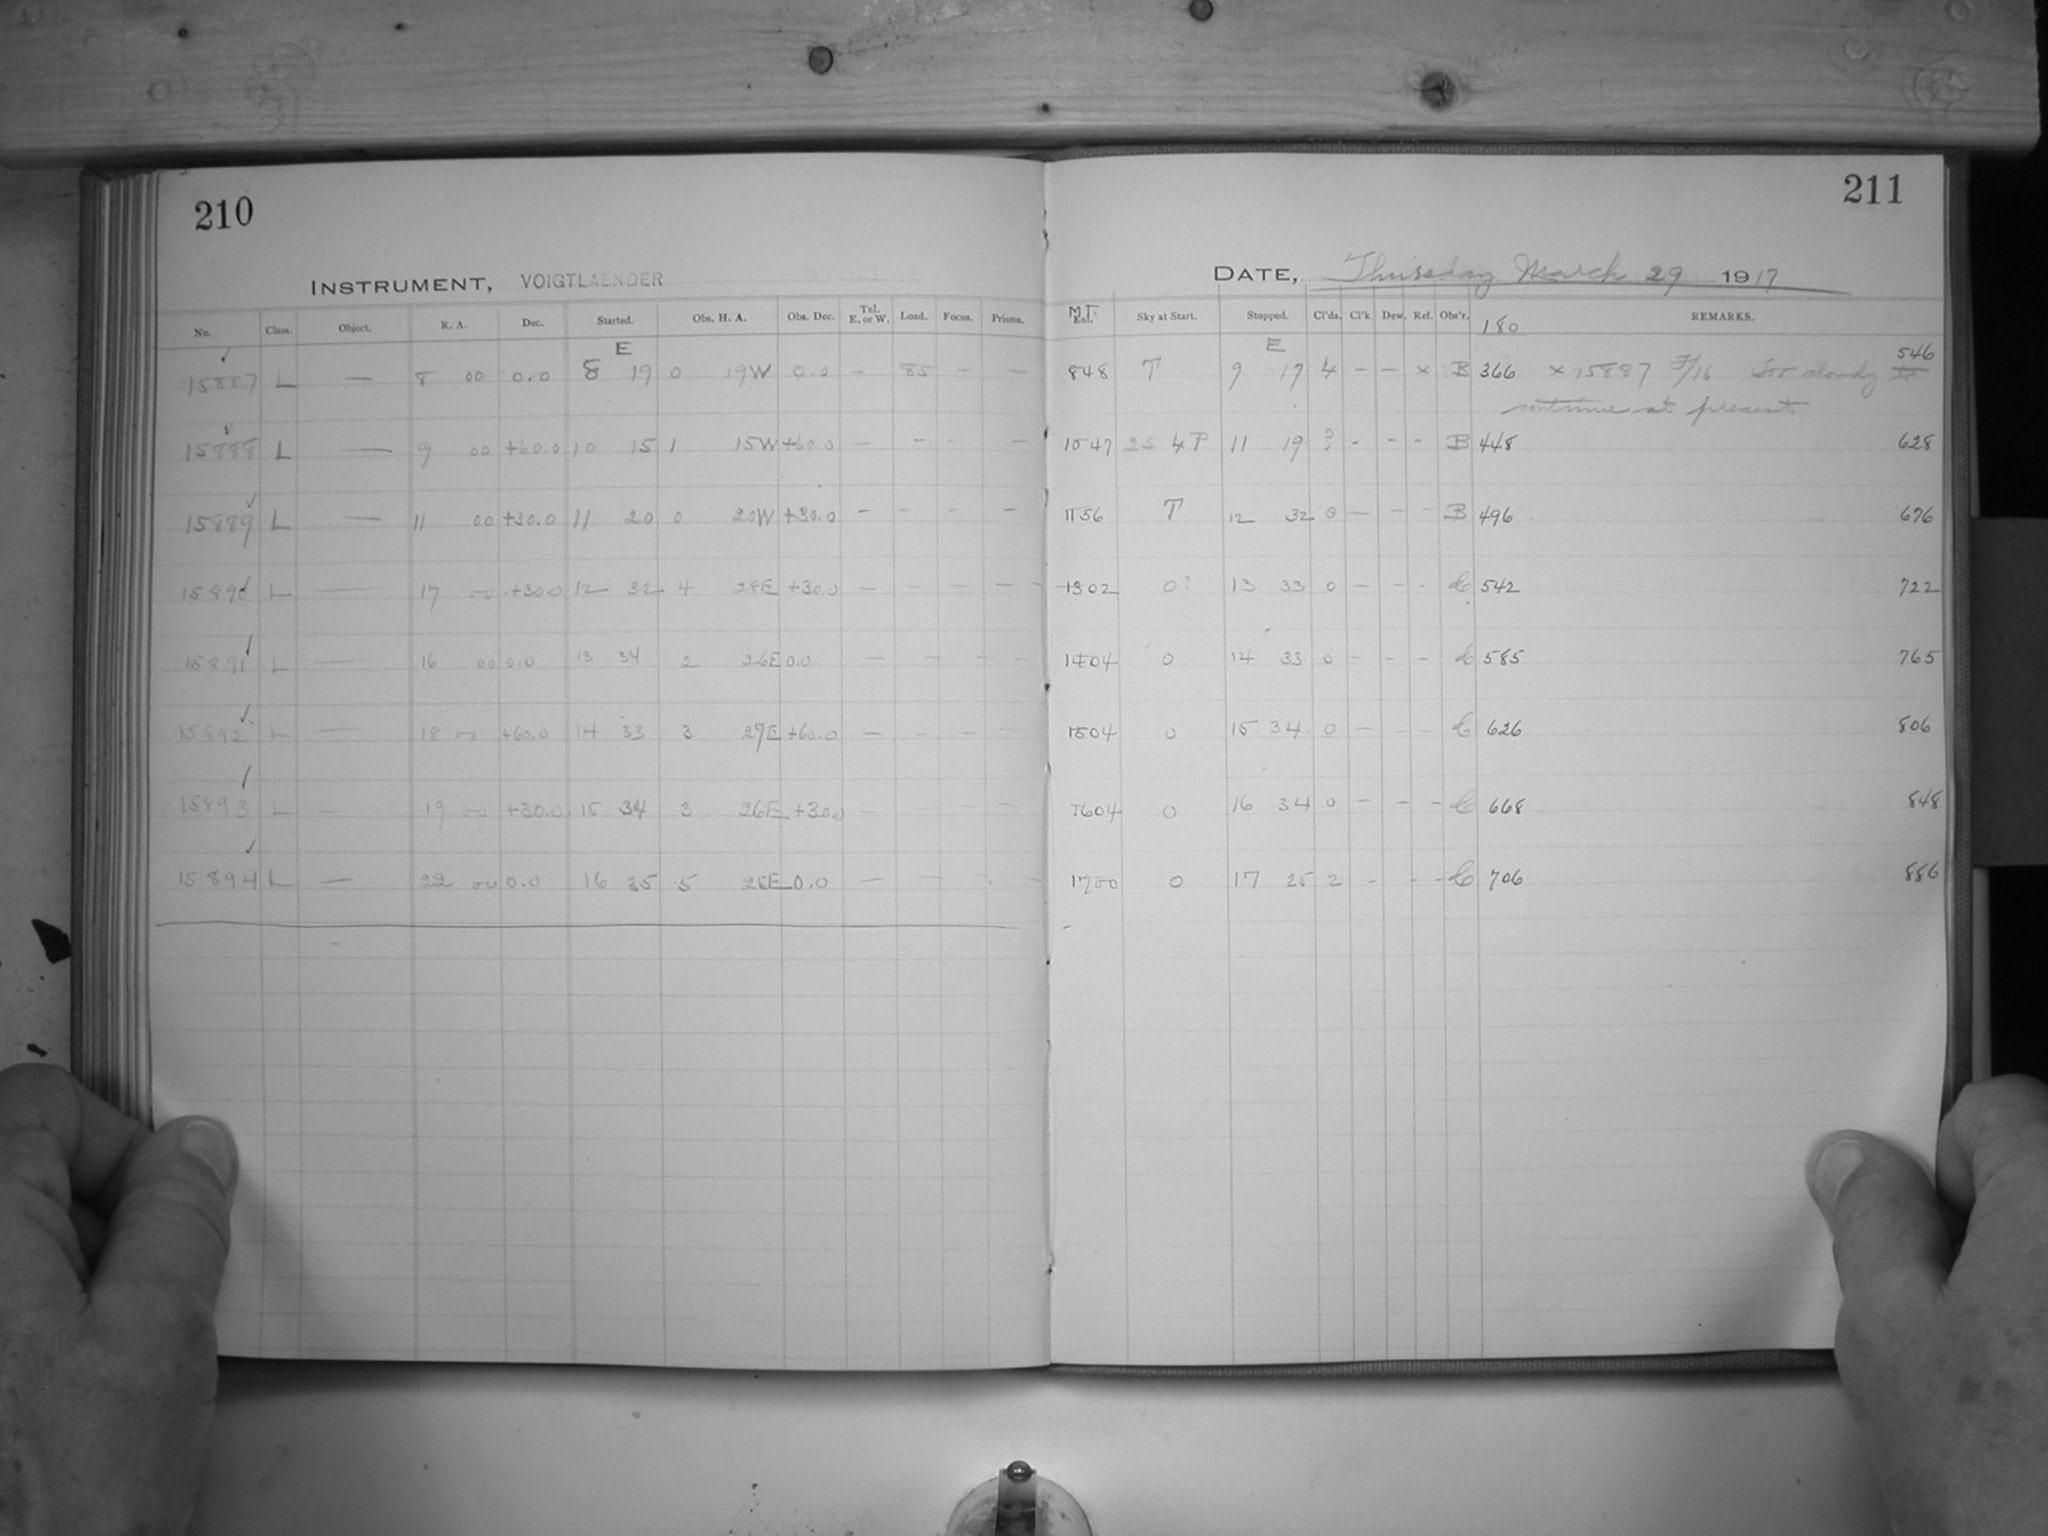 210
211
INSTRUMENT, VOIGTLAENDER
DATE, Thursday March 29 1917
No. Class. Object. R. A. Dec. Started. Obs. H. A. Obs. Dec. Tel. E. or W. Load. Focus. Prisms. M.T. Sky at Start. Stopped. Cl'ds. Cl'k Dew. Ref. Obs'r. 180 REMARKS.
E E
15887 L — 8 00 0.0 8 19 0 19W 0.0 - 85 - - 848 T 9 17 4 - - x B 366 x 15887 F/16 Too cloudy to 546
continue at present
15888 L — 9 00 +60.0 10 15 1 15W +60.0 - - - - 1047 2S 4P 11 19 ? - - - B 448 628
15889 L — 11 00 +30.0 11 20 0 20W +30.0 - - - - 1156 T 12 32 0 - - - B 496 676
15890 L — 17 00 +30.0 12 32 4 28E +30.0 - - - - 1302 0? 13 33 0 - - - 542 722
15891 L — 16 00 0.0 13 34 2 26E 0.0 - - - - 1404 0 14 33 0 - - - 585 765
15892 L — 18 00 +60.0 14 33 3 27E +60.0 - - - - 1504 0 15 34 0 - - - 626 806
15893 L — 19 00 +30.0 15 34 3 26E +30.0 - - - - 1604 0 16 34 0 - - - 668 848
15894 L — 22 00 0.0 16 35 5 25E 0.0 - - - - 1700 0 17 25 2 - - - 706 886